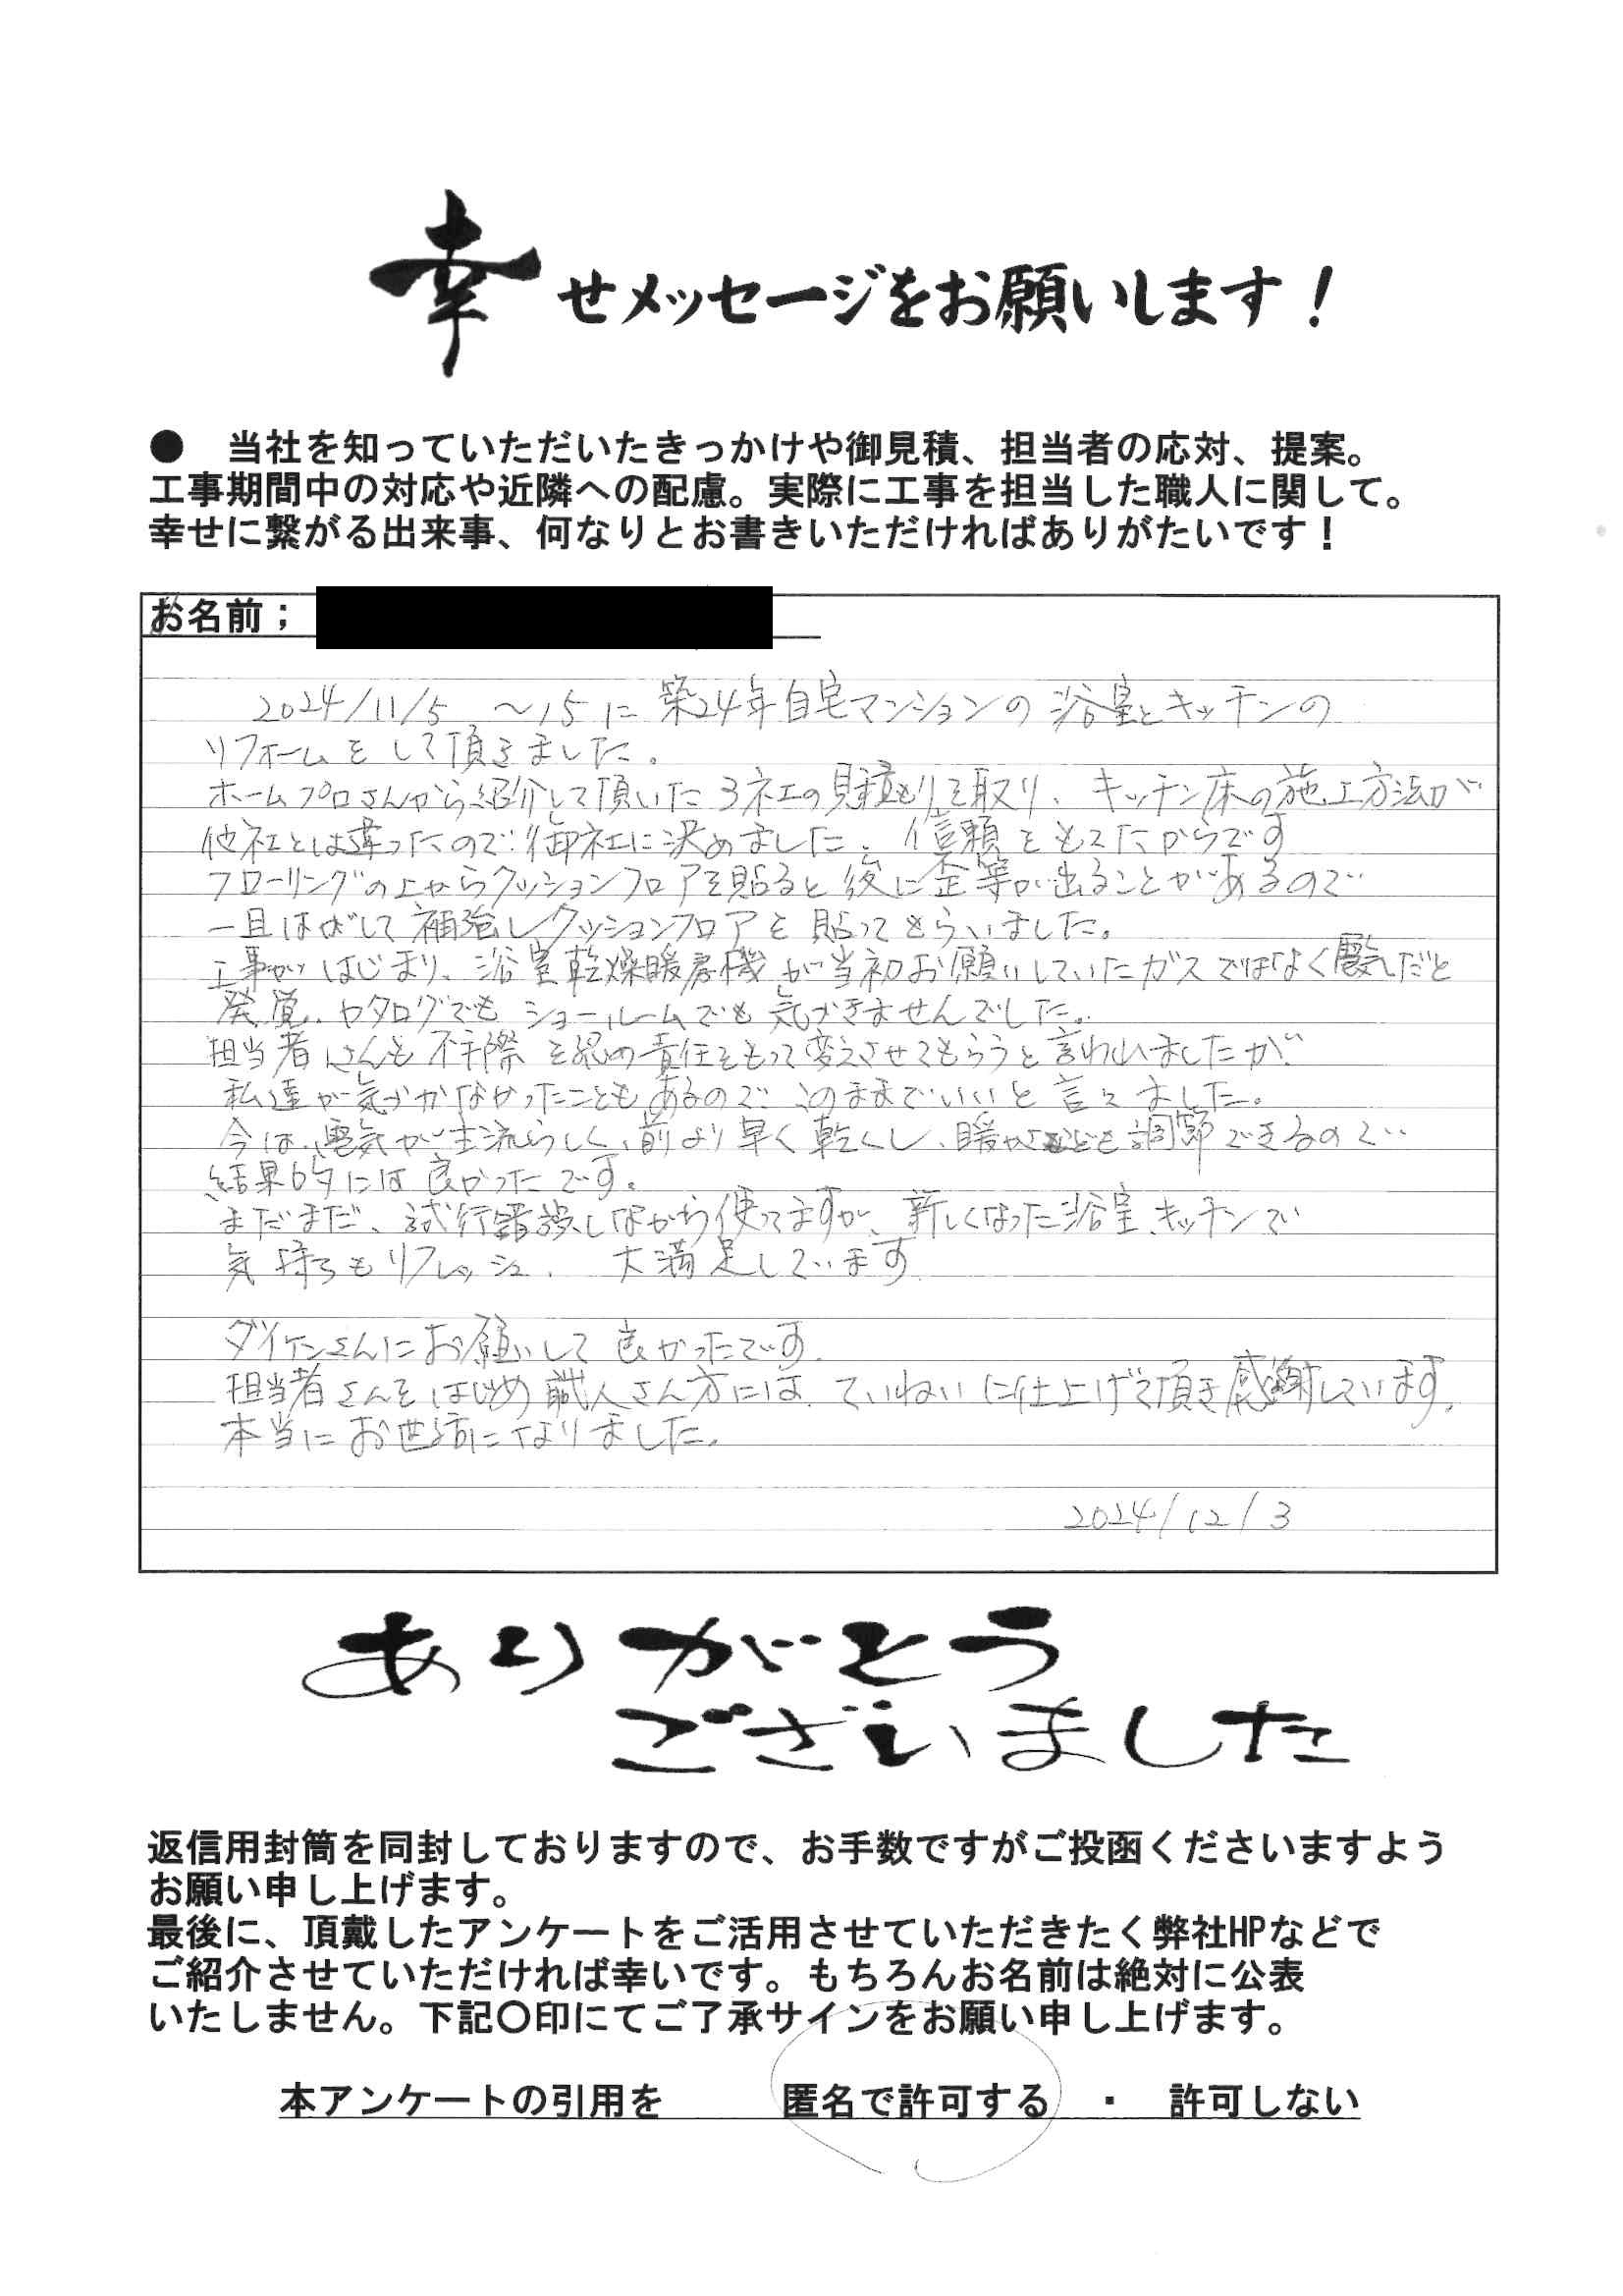 幸せメッセージをお願いします！
●　当社を知っていただいたきっかけや御見積、担当者の応対、提案。
工事期間中の対応や近隣への配慮。実際に工事を担当した職人に関して。
幸せに繋がる出来事、何なりとお書きいただければありがたいです！
お名前；
2024/11/5 ～15に 築24年自宅マンションの 浴室とキッチンの
リフォームをして頂きました。
ホームプロさんから紹介して頂いた3社の見積もりを取り、キッチン床の施工方法が
他社とは違ったので御社に決めました。信頼をもてたからです
フローリングの上からクッションフロアを貼ると後に歪等が出ることがあるので
一旦はがして補強しクッションフロアを貼ってもらいました。
工事がはじまり、浴室乾燥暖房機が当初お願いしていたガスではなく電気だと
発覚、カタログでもショールームでも気づきませんでした。
担当者さんも不手際を認め責任をもって変えさせてもらうと言われましたが、
私達が気づかなかったこともあるので、このままでいいと言えました。
今は、電気が主流らしく、前より早く乾くし、暖かさなども調節できるので
結果的には良かったです。
まだまだ、試行錯誤しながら使ってますが、新しくなった浴室、キッチンで
気持ちもリフレッシュ、大満足しています
ダイケンさんにお願いして良かったです。
担当者さんをはじめ職人さん方には、ていねいに仕上げて頂き感謝しています。
本当にお世話になりました。
2024/12/3
ありがとう
ございました
返信用封筒を同封しておりますので、お手数ですがご投函くださいますよう
お願い申し上げます。
最後に、頂戴したアンケートをご活用させていただきたく弊社HPなどで
ご紹介させていただければ幸いです。もちろんお名前は絶対に公表
いたしません。下記〇印にてご了承サインをお願い申し上げます。
本アンケートの引用を　　匿名で許可する　・　許可しない